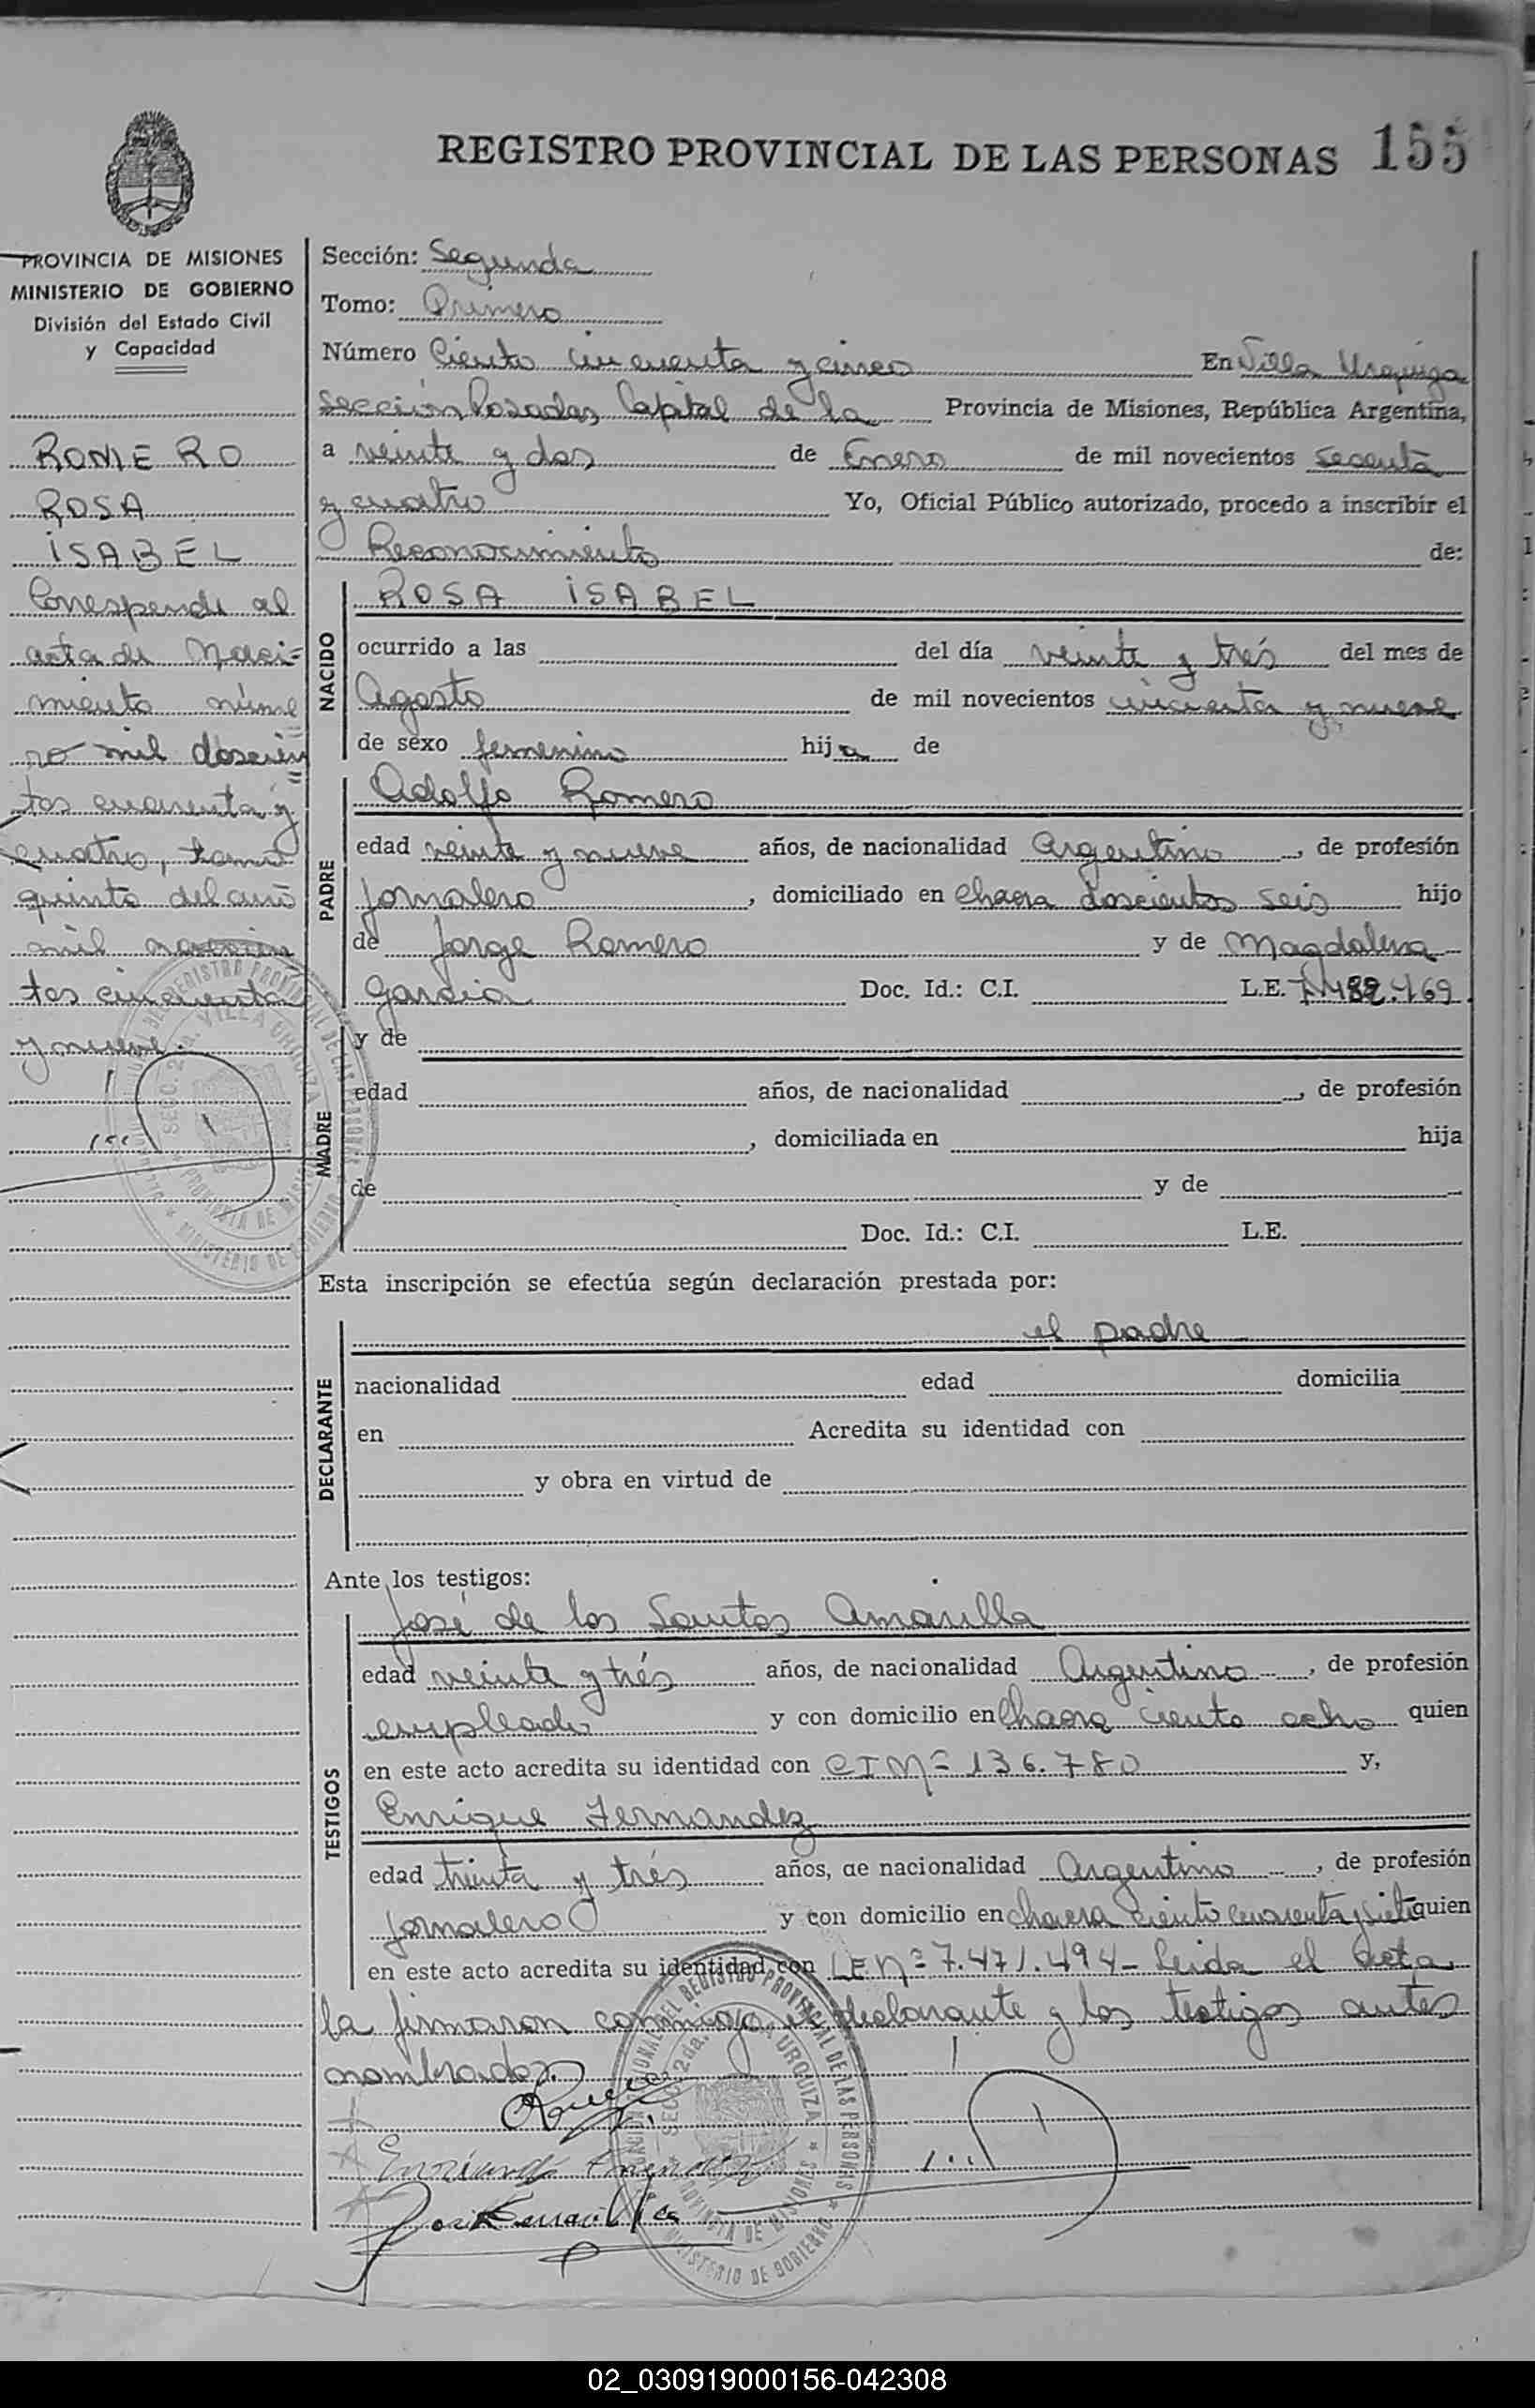 REGISTRO PROVINCIAL DE LAS PERSONAS 155
PROVINCIA DE MISIONES
MINISTERIO DE GOBIERNO
División del Estado Civil
y Capacidad
ROMERO
ROSA
ISABEL
Corresponde al
acta de Naci=
miento núme
ro mil doscien
tos cuarenta y
cuatro, tomo
quinto del año
mil novecien
tos cincuenta
y nueve.
Sección: Segunda
Tomo: Primero
Número Ciento cincuenta y cinco En Villa Urquiza
Sección Posadas, Capital de la Provincia de Misiones, República Argentina,
a veinte y dos de Enero de mil novecientos secenta
y cuatro Yo, Oficial Público autorizado, procedo a inscribir el
Reconocimiento de:
NACIDO
ROSA ISABEL
ocurrido a las del día veinte y trés del mes de
Agosto de mil novecientos cincuenta y nueve
de sexo femenino hija de
PADRE
Adolfo Romero
edad veinte y nueve años, de nacionalidad Argentino, de profesión
Jornalero, domiciliado en Chacra doscientos seis hijo
de Jorge Romero y de Magdalena
Garcia Doc. Id.: C.I. L.E. 7.482.769.
MADRE
y de
edad años, de nacionalidad , de profesión
, domiciliada en hija
de y de
Doc. Id.: C.I. L.E.
Esta inscripción se efectúa según declaración prestada por:
DECLARANTE
el padre
nacionalidad edad domicilia
en Acredita su identidad con
y obra en virtud de
Ante los testigos:
TESTIGOS
José de los Santos Amarilla
edad veinte y trés años, de nacionalidad Argentino, de profesión
empleado y con domicilio en Chacra ciento ocho quien
en este acto acredita su identidad con CI Nº 136.780 y,
Enrique Fernandez
edad treinta y trés años, de nacionalidad Argentino, de profesión
Jornalero y con domicilio en chacra ciento cuarenta y siete quien
en este acto acredita su identidad con LE Nº 7.471.494- Leida el acta
la firmaron conmigo el declarante y los testigos antes
nombrados.
02_030919000156-042308